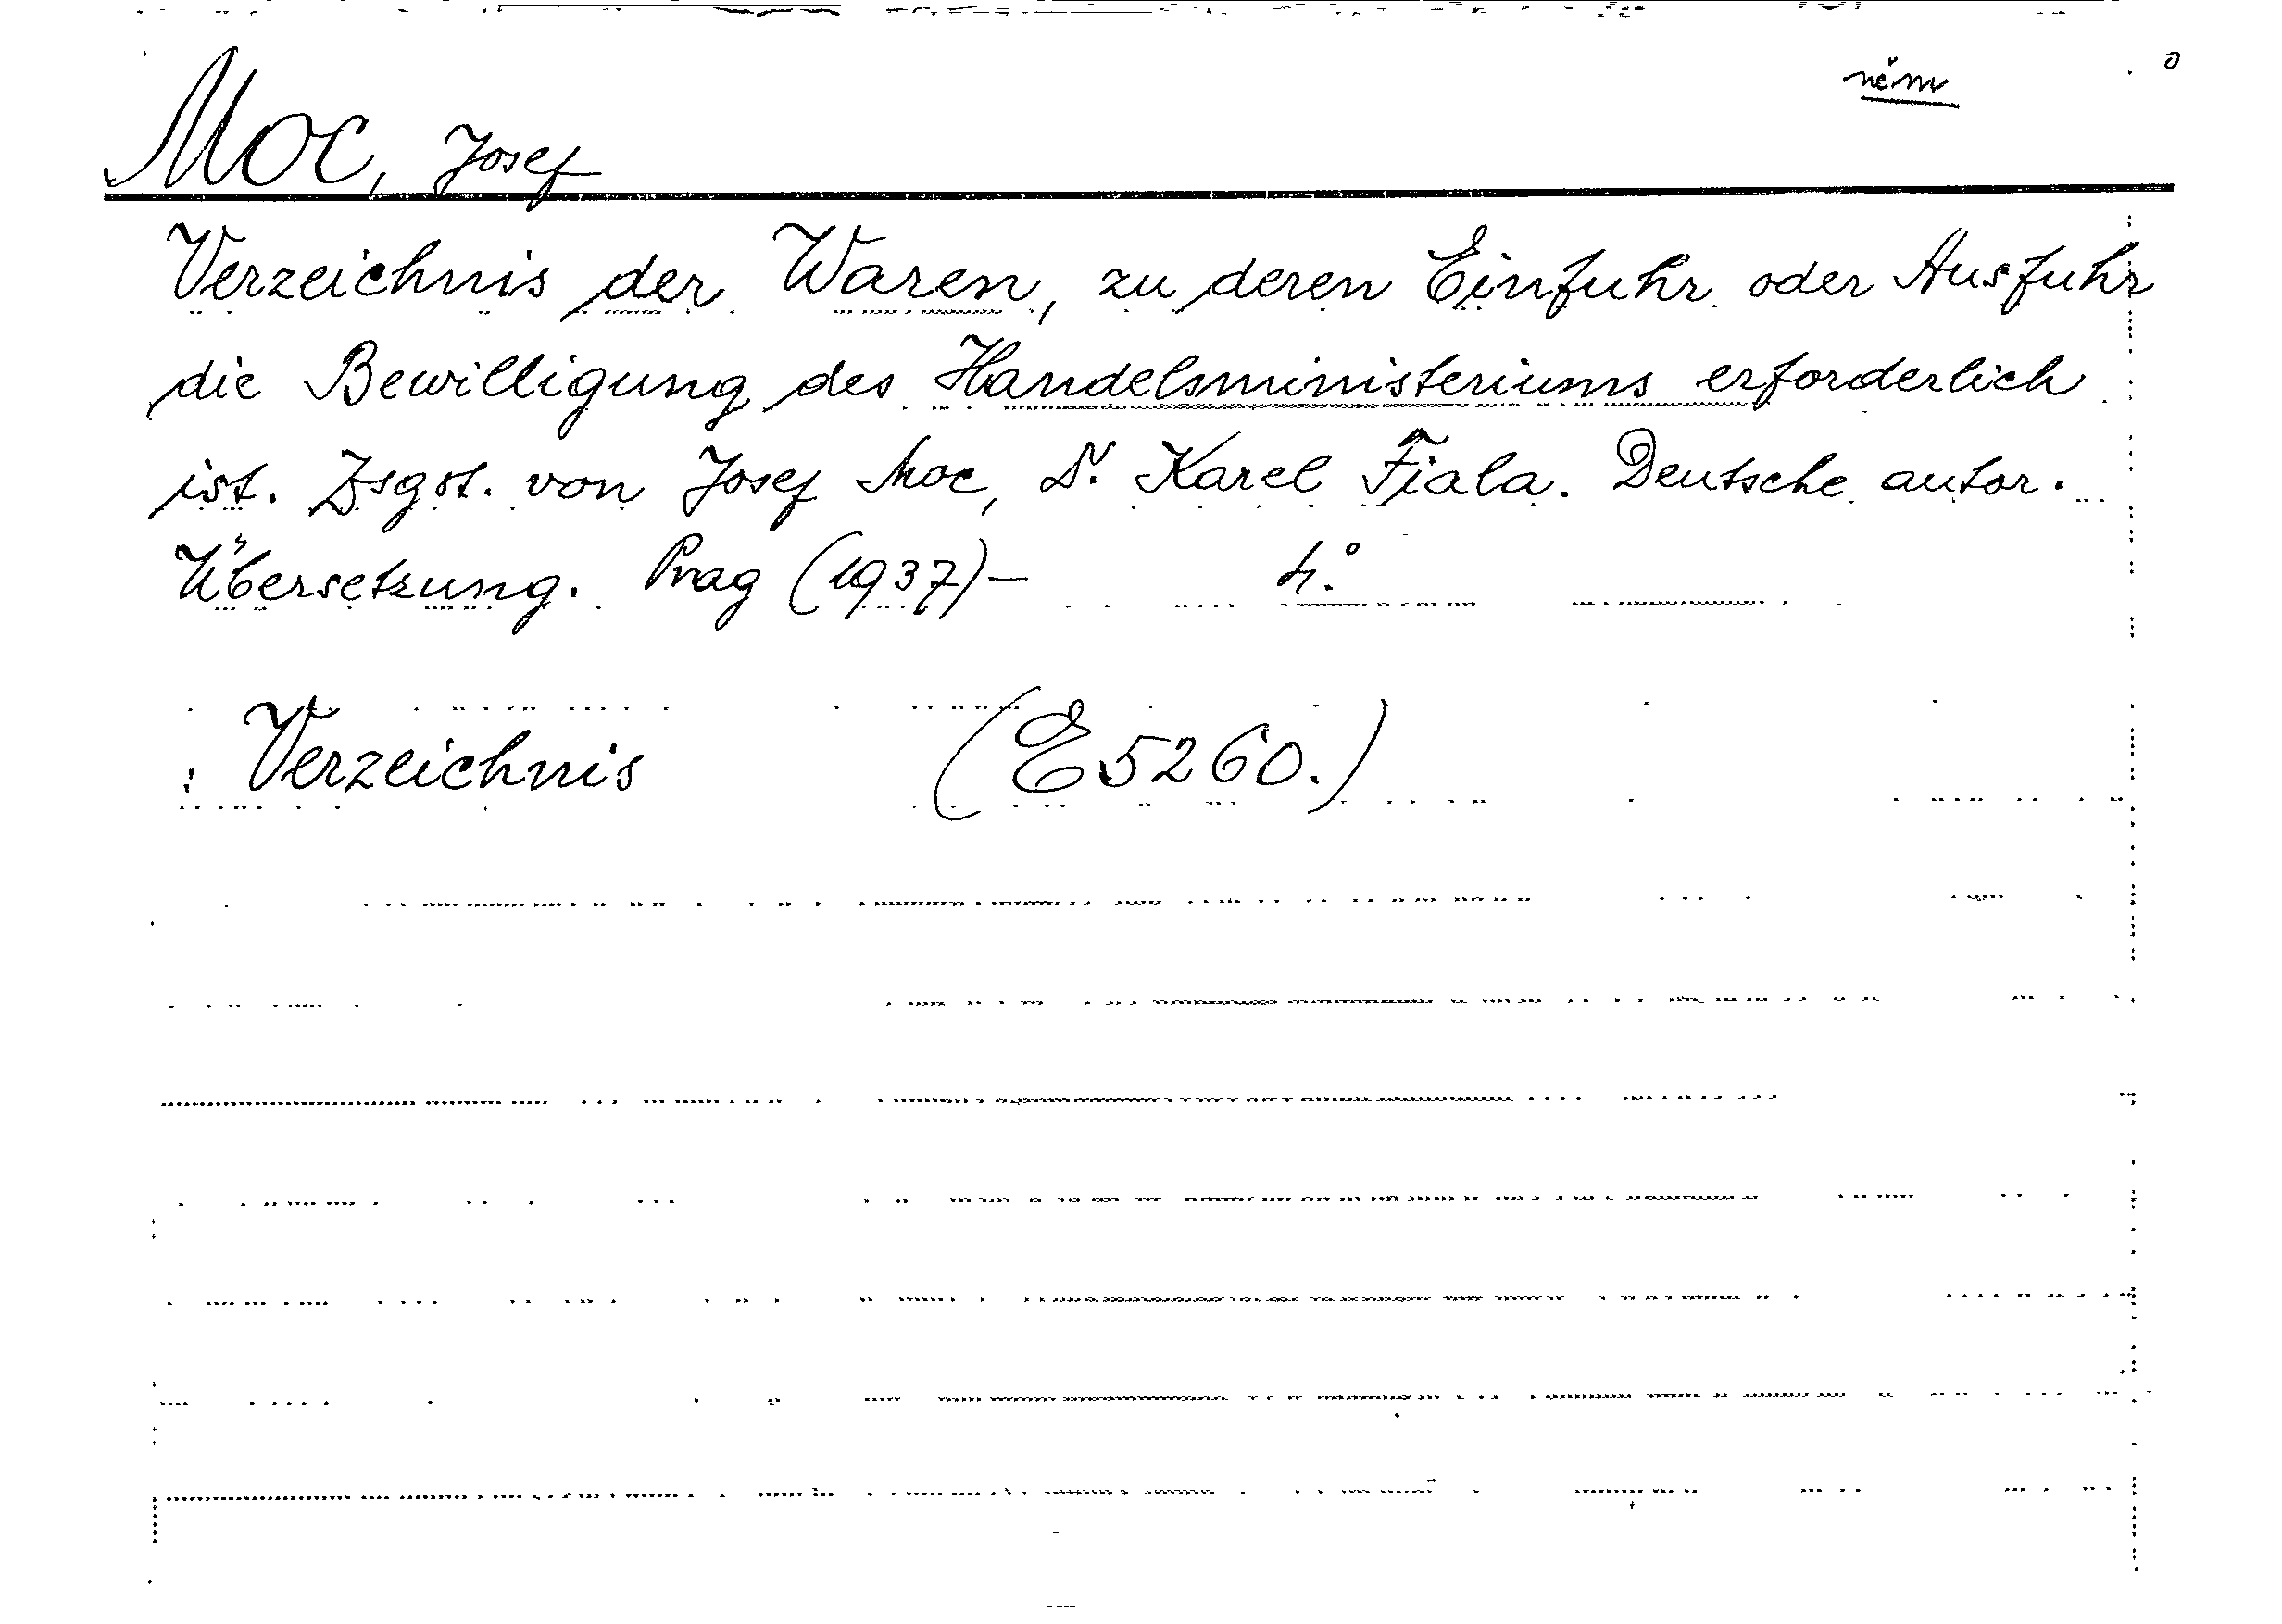 něm
Moc, Josef
Verzeichnis der Waren, zu deren Einfuhr oder Ausfuhr
die Bewilligung des Handelsministeriums erforderlich
ist. Zsgst. von Josef Moc, Dr. Karel Fiala. Deutsche autor.
Übersetzung. Prag (1937)- 4.°
: Verzeichnis (E 5260.)